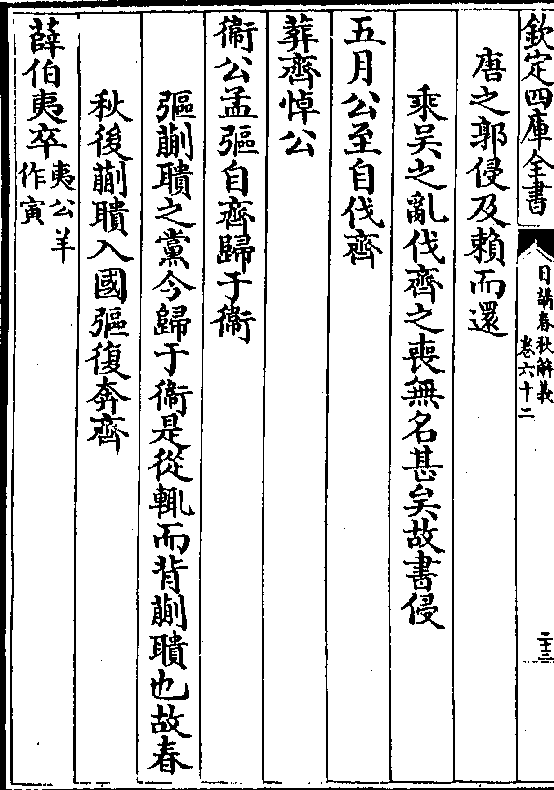 欽定四庫全書
日講春秋解義
卷六十二
二十三
唐之郭侵及賴而還
乘吳之亂伐齊之喪無名甚矣故書侵
五月公至自伐齊
葬齊悼公
衞公孟彄自齊歸于衞
彄蒯聵之黨今歸于衞是從輒而背蒯聵也故春
秋後蒯聵入國彄復奔齊
薛伯夷卒夷公羊
作寅